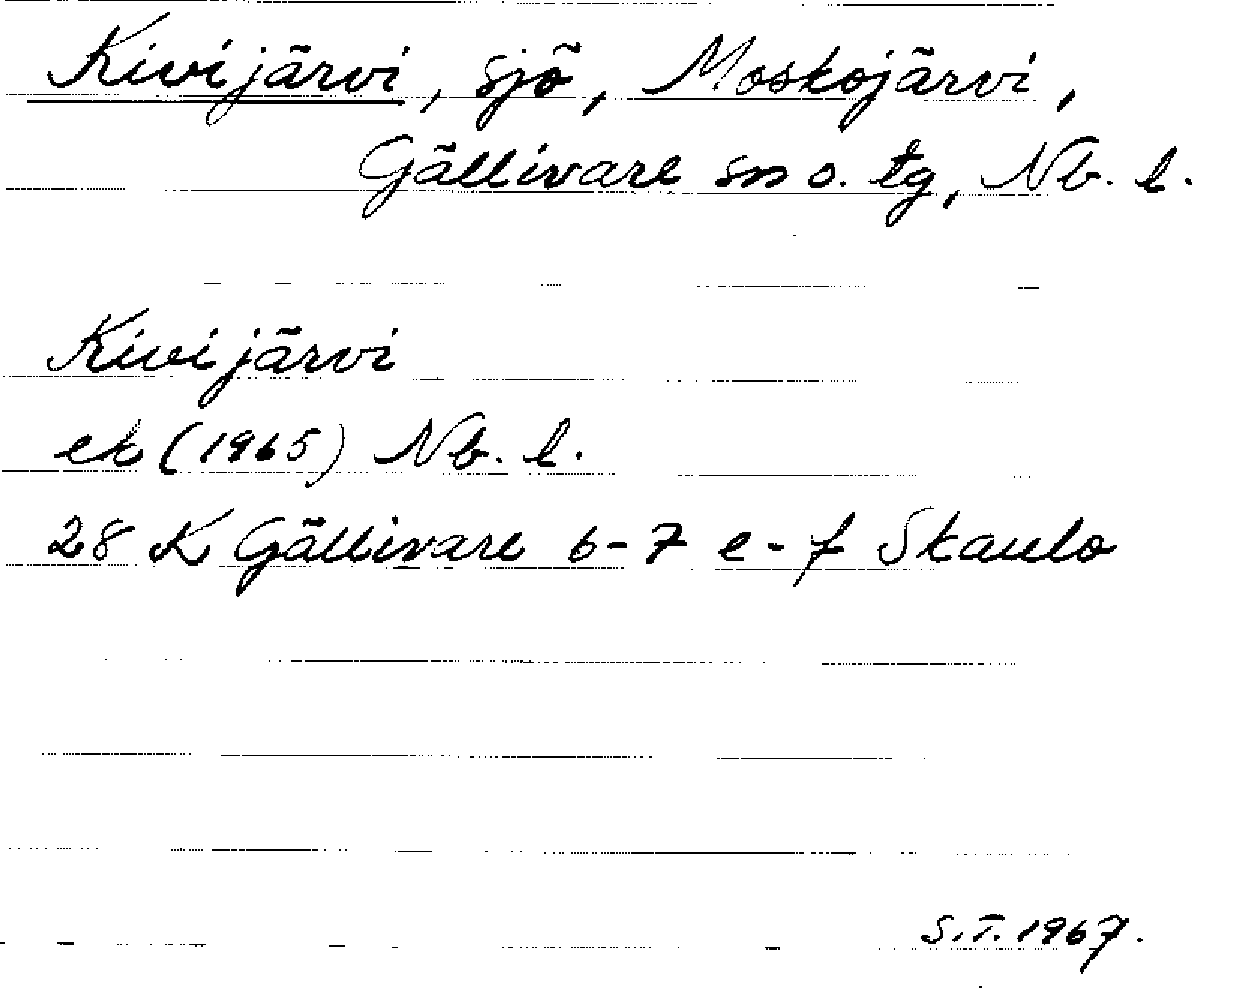 Kivijärvi, sjö, Moskojärvi,
Gällivare sn o. tg, Nb. l.
Kivijärvi
ek (1965) Nb. l.
28 K Gällivare 6-7 e-f Skaulo
S.T. 1967.